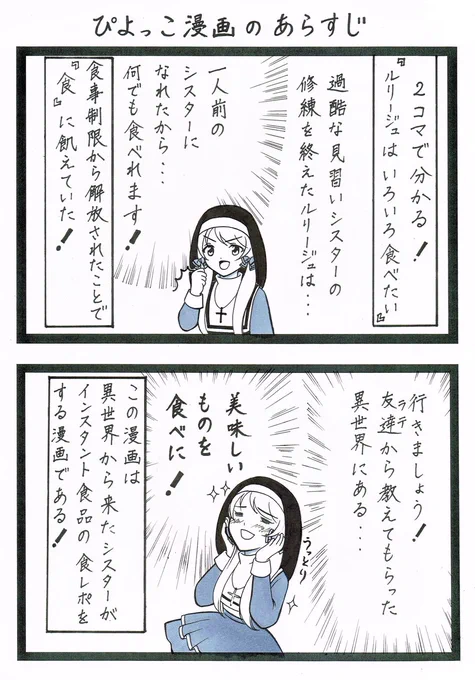 ぴよっこ漫画のあらすじ
2コマで分かる！
『ルリージュはいろいろ食べたい』
過酷な見習いシスターの
修練を終えたルリージュは・・・
一人前の
シスターに
なれたから・・・
何でも食べれます！
食事制限から解放されたことで
『食』に飢えていた！
行きましょう！
友達から教えてもらった
ラテ
異世界にある・・・
美味しい
ものを
食べに！
うっとり
この漫画は
異世界から来たシスターが
インスタント食品の食レポを
する漫画である！